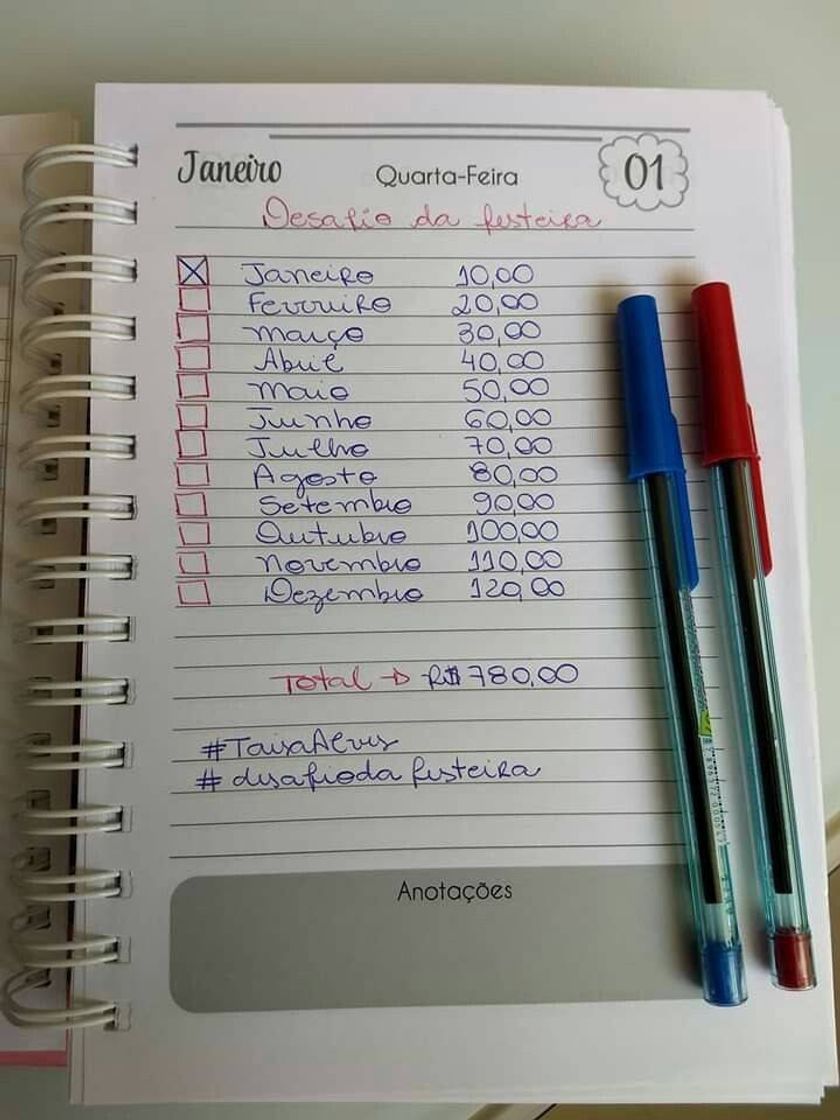 Janeiro Quarta-Feira 01
Desafio da festeira
Janeiro 10,00
Fevereiro 20,00
Março 30,00
Abril 40,00
Maio 50,00
Junho 60,00
Julho 70,00
Agosto 80,00
Setembro 90,00
Outubro 100,00
Novembro 110,00
Dezembro 120,00
Total → R$ 780,00
#TaisaAlves
#desafiodafesteira
Anotações